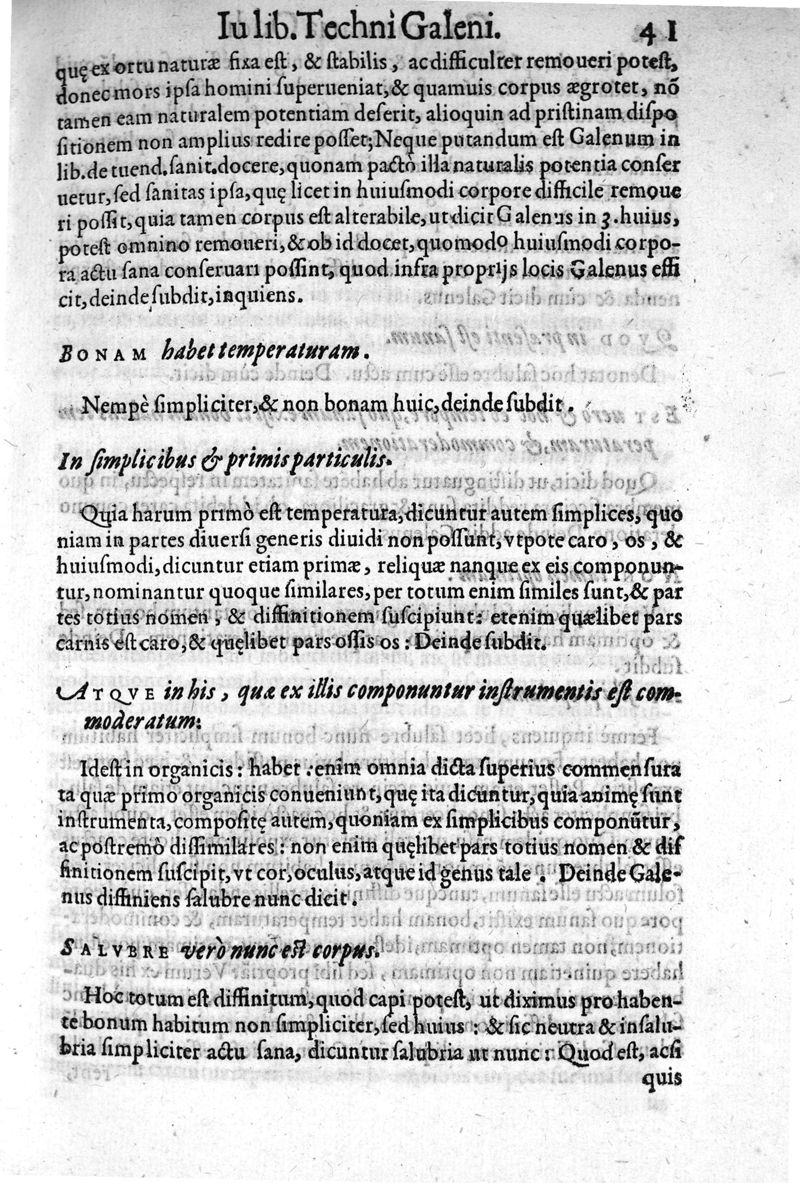 Iu lib. Techni Galeni. 41
quę ex ortu naturæ fixa est, & stabilis, ac difficulter remoueri potest,
donec mors ipsa homini superueniat, & quamuis corpus ægrotet, nō
tamen eam naturalem potentiam deserit, alioquin ad pristinam dispo
sitionem non amplius redire posset; Neque putandum est Galenum in
lib. de tuend. sanit. docere, quonam pactò illa naturalis potentia conser
uetur, sed sanitas ipsa, quę licet in huiusmodi corpore difficile remoue
ri possit, quia tamen corpus est alterabile, ut dicit Galenus in 3. huius,
potest omnino remoueri, & ob id docet, quomodo huiusmodi corpo-
ra actu sana conseruari possint, quod infra proprijs locis Galenus effi
cit, deinde subdit, inquiens.
BONAM habet temperaturam.
Nempè simpliciter, & non bonam huic, deinde subdit.
In simplicibus & primis particulis.
Quia harum primò est temperatura, dicuntur autem simplices, quo
niam in partes diuersi generis diuidi non possunt, vtpote caro, os, &
huiusmodi, dicuntur etiam primæ, reliquæ nanque ex eis componun-
tur, nominantur quoque similares, per totum enim similes sunt, & par
tes totius nomen, & diffinitionem suscipiunt: etenim quælibet pars
carnis est caro, & quęlibet pars ossis os: Deinde subdit.
ATQVE in his, quæ ex illis componuntur instrumentis est com-
moderatum:
Idest in organicis: habet enim omnia dicta superius commensura
ta quæ primo organicis conueniunt, quę ita dicuntur, quia animę sunt
instrumenta, compositę autem, quoniam ex simplicibus componūtur,
ac postremò dissimilares: non enim quęlibet pars totius nomen & dif
finitionem suscipit, vt cor, oculus, atque id genus tale. Deinde Gale-
nus diffiniens salubre nunc dicit.
SALVBRE verò nunc est corpus.
Hoc totum est diffinitum, quod capi potest, ut diximus pro haben-
te bonum habitum non simpliciter, sed huius: & sic neutra & insalu-
bria simpliciter actu sana, dicuntur salubria ut nunc: Quod est, acsi
quis